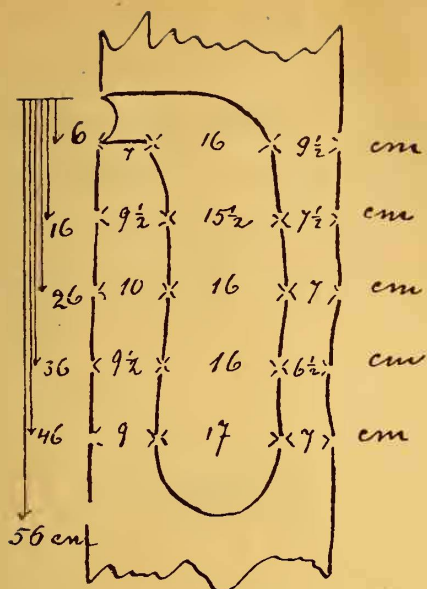 6 7 16 9 1/2 cm
16 9 1/2 15 1/2 7 1/2 cm
26 10 16 7 cm
36 9 1/2 16 6 1/2 cm
46 9 17 7 cm
56 cm